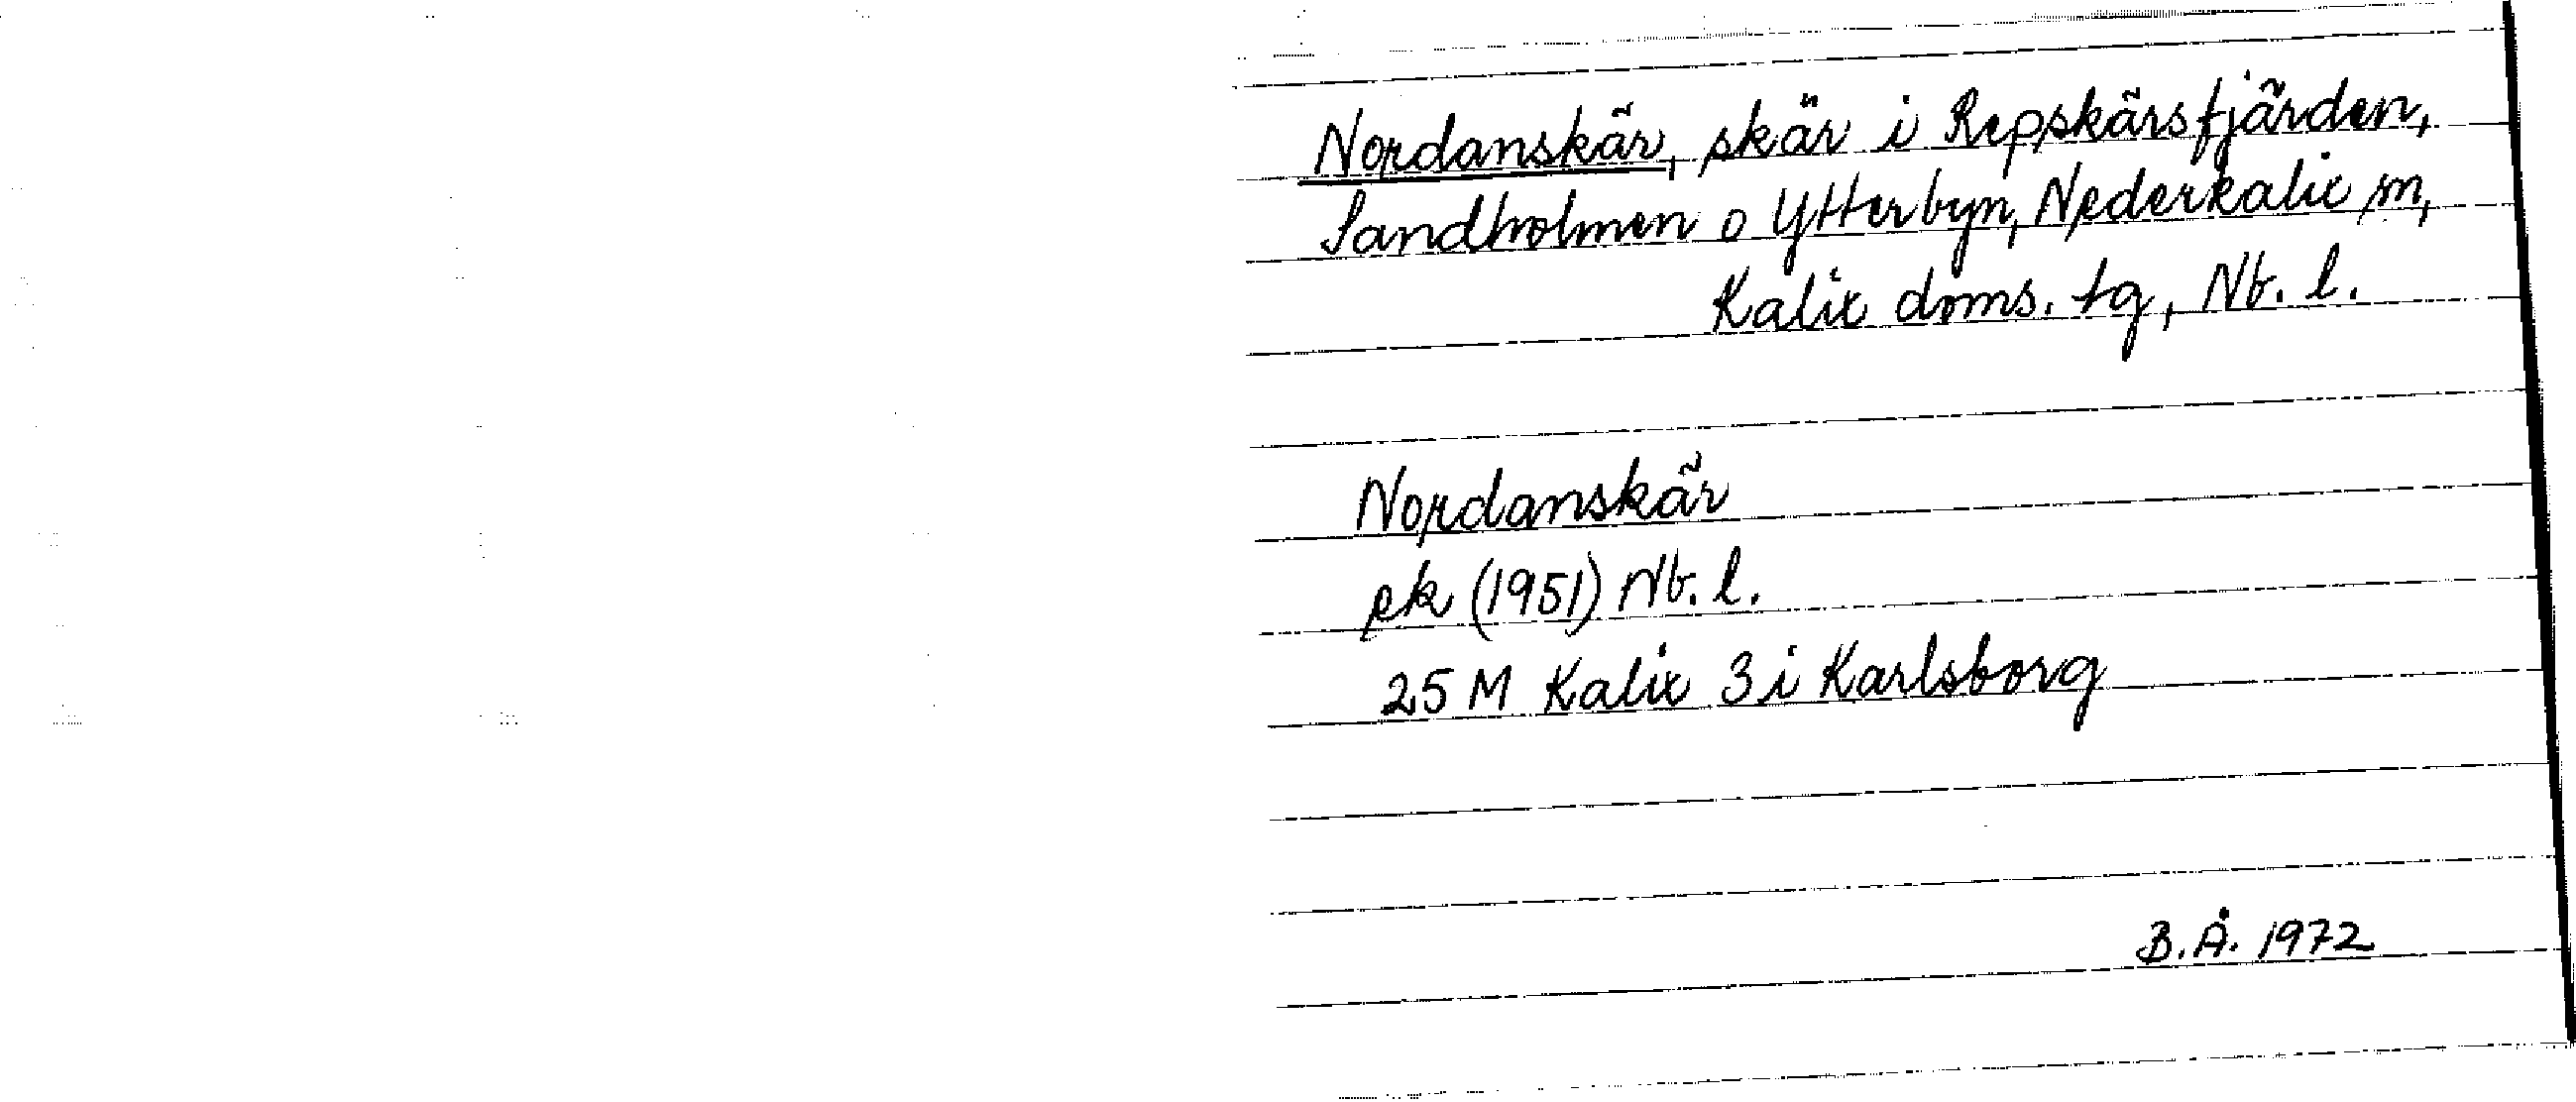 Nordanskär, skär i Repskärsfjärden,
Sandholmen o Ytterbyn, Nederkalix sn,
Kalix doms. tg, Nb. l.
Nordanskär
ek (1951) Nb. l.
25 M Kalix 3 i Karlsborg
B.Å. 1972